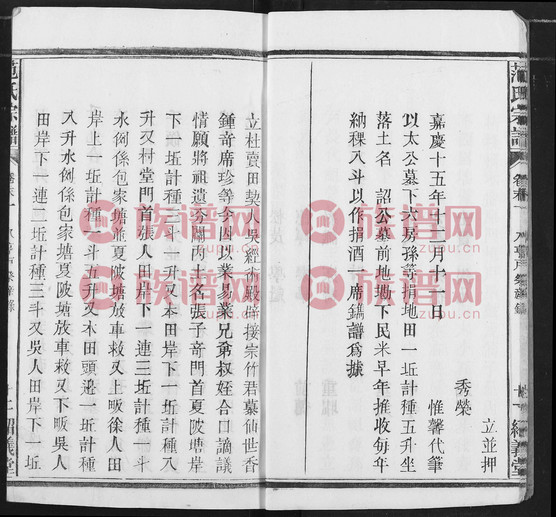 范氏宗譜
秀榮
立並押
惟馨代筆
嘉慶十五年十二月十一日
以太公墓下六房孫等捐地田一坵計種五升坐
落土名 詔公墓前地坳下民米早年推收每年
納稞八斗以作捐酒一席鐫譜爲據
經義堂
范氏宗譜
立杜賣田契人吳經術殿畔接宗竹君墓仙世香
鍾奇席珍等今因以業易業兄弟叔姪合口謫議
情願將祖遺分關內土名張子奇門首夏陂塘岸
下田一坵計種三斗一升又本田岸下一坵計種八
升又村堂門首張人田岸下一連三坵計種一斗
水例係包家塘並夏陂塘放車救又上畈徐人田
岸上一坵計種一斗五升又木田頭邊一坵計種
八升水例係包家塘夏陂塘放車救又下畈吳人
田岸下一連二坵計種三斗又吳人田岸下一坵
族谱网
zupu.cn
族谱网
zupu.cn
族谱网
zupu.cn
族谱网
zupu.cn